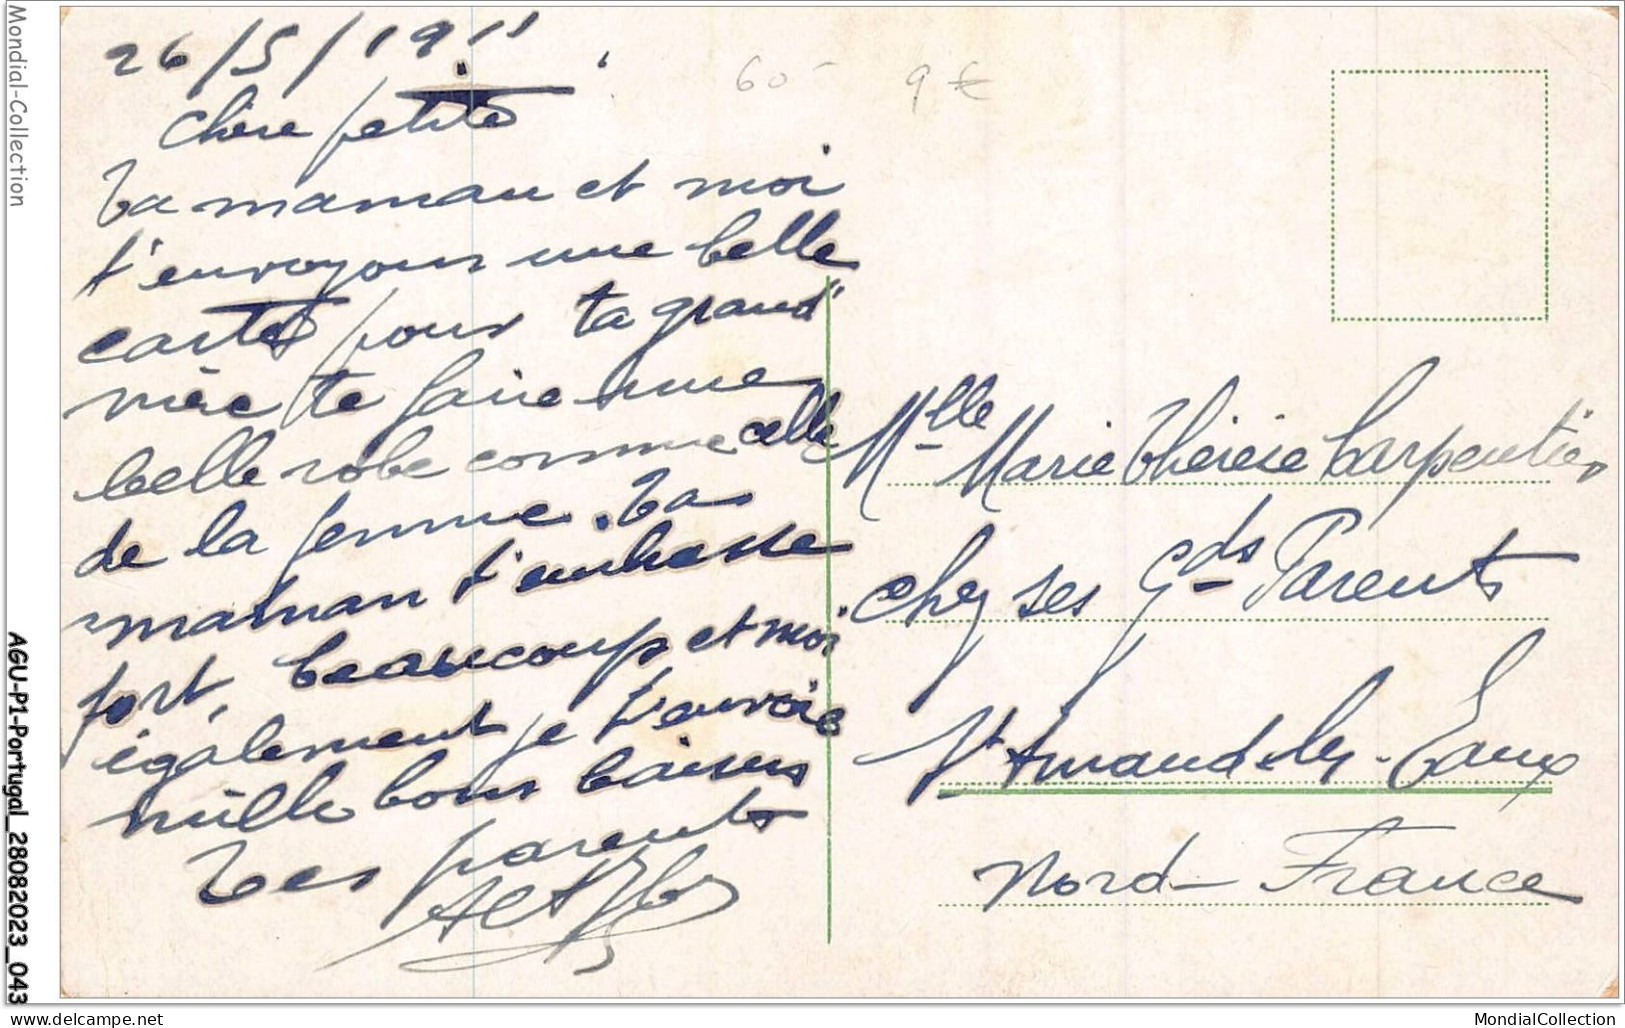 26/5/1911
60- 9 €
Chère petite
Ta maman et moi
t'envoyons une belle
carte pour ta grand'
mère te faire une
belle robe comme celle
de la femme. Ta
maman t'embrasse
fort, beaucoup et moi
également je t'envoie
mille bons baisers
Tes parents
Mlle Marie Thérèse Carpentier
Chez ses Gds Parents
St Amand les-Eaux
Nord- France
Mondial-Collection
AGU-P1-Portugal_28082023_043
www.delcampe.net
MondialCollection